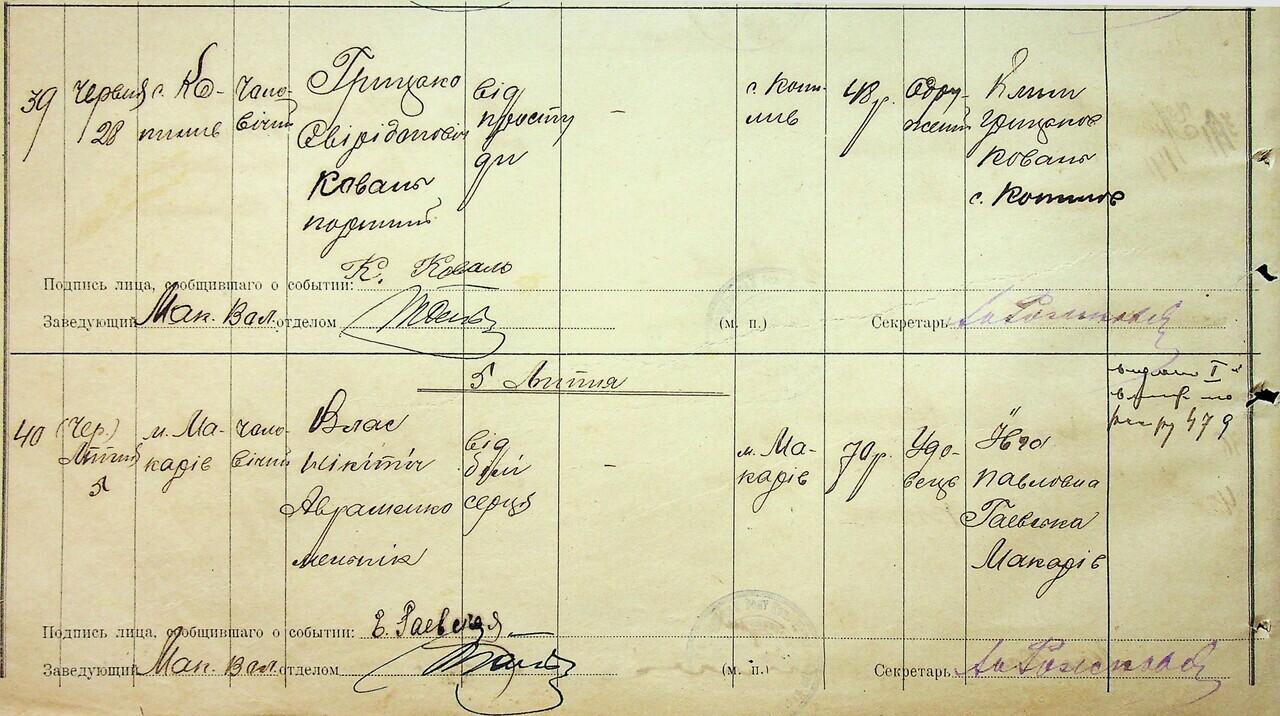 39
Червня
28
с. Ко-
пилив
Чоло-
вічий
Грицько
Свірідонович
Коваль
від
простуди
-
с. Копи-
лив
48 р.
Одру-
жений
Клим
Грицьков
Коваль
с. Копилов
Подпись лица, сообщившаго о событіи: К. Коваль
Заведующий Мак. Вол. отделом
(м. п.)
Секретарь
5 Липня
40
(Чер.)
Липня
5
м. Ма-
карів
чоло-
вічий
Влас
Нікітіч
Авраменко
мельнік
від
болі
серця
-
м. Ма-
карів
70 р.
Удо-
вець
Павловна
Гаевська
Макарів
479
Подпись лица, сообщившаго о событіи: Е. Гаевская
Заведующий Мак. Вол. отделом
(м. п.)
Секретарь